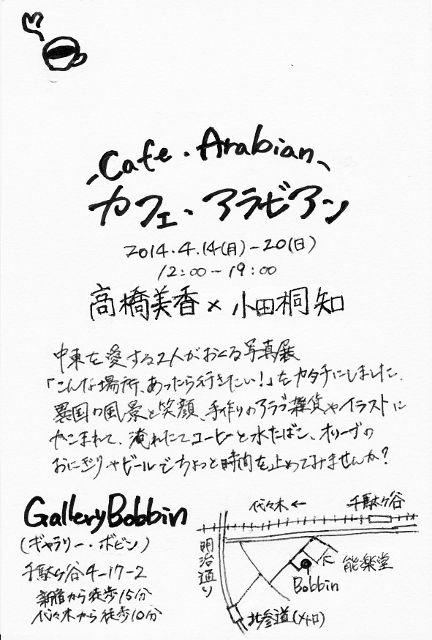 Cafe・Arabian
カフェ・アラビアン
2014.4.14(月)-20(日)
12:00~19:00
高橋美香×小田桐知
中東を愛する2人がおくる写真展
「こんな場所、あったら行きたい!」をカタチにしました.
異国の風景と笑顔、手作りのアラブ雑貨やイラストに
かこまれて、淹れたてコーヒーと水たばこ、オリーブの
おにぎりやビールでちょっと時間を止めてみませんか?
GalleryBobbin
(ギャラリー・ボビン)
千駄ヶ谷4-17-2
新宿から徒歩15分
代々木から徒歩10分
代々木←
千駄ヶ谷
明治通り
能楽堂
Bobbin
北参道(メトロ)